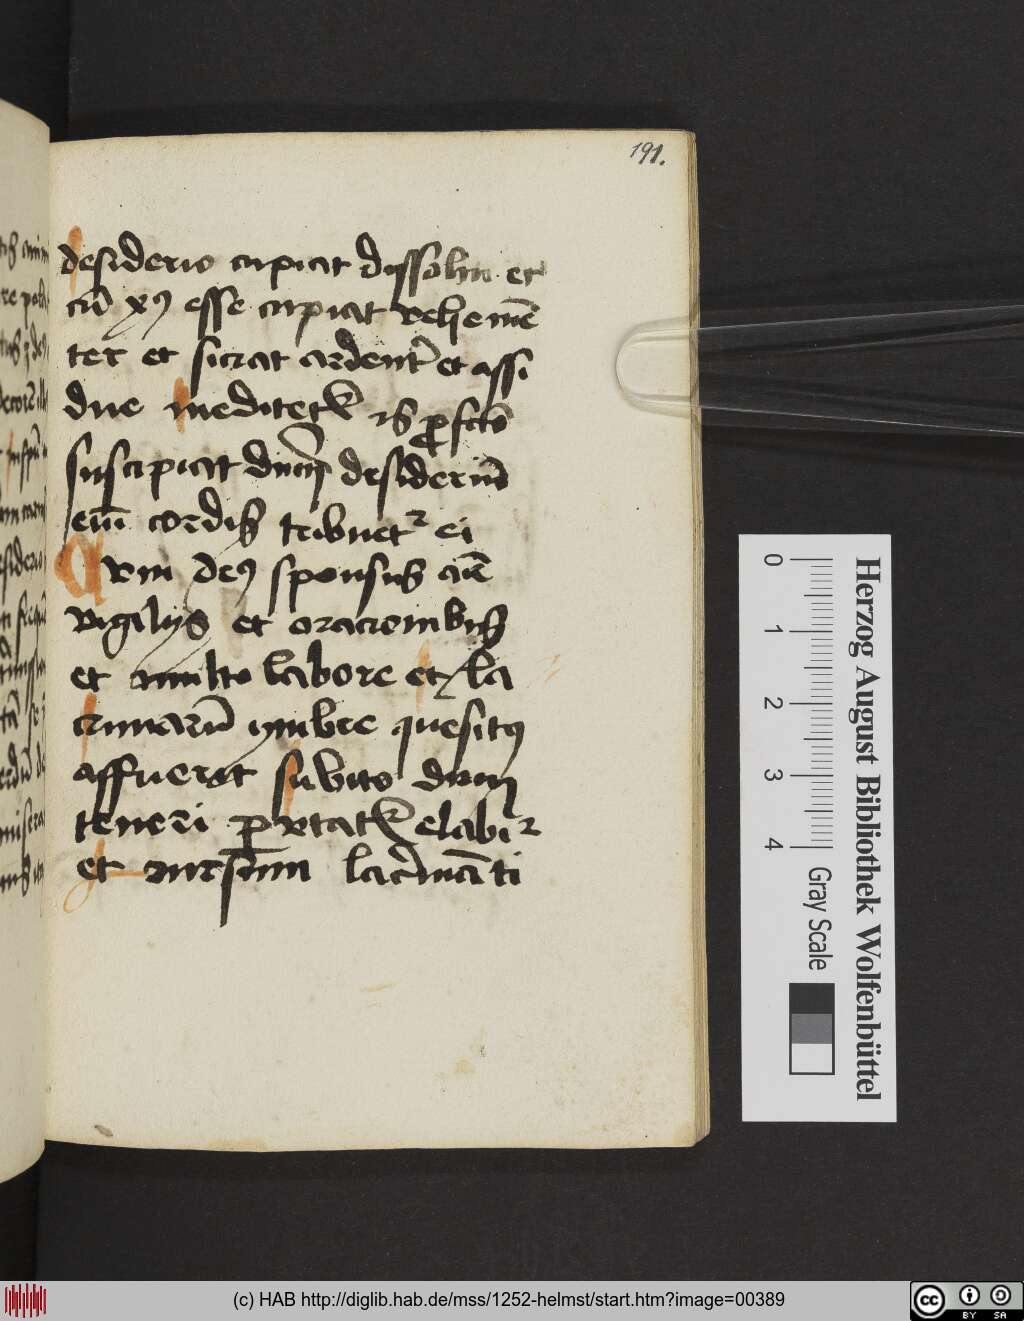 191.
desiderio cupiat dissolui et
cū xp̄o esse cupiat vehemē
ter et siciat ardent̄ et assi
due meditet̄
suscipiat diuinū desideriū
eni cordis tribuetur ei
vm deꝯ sponsus
vigilijs et oracionibus
et multo labore et la
crimarū ymbre quesitꝯ
affuerit subito dum
teneri putatur elabi2
et rursum lac̄imāti
Herzog August Bibliothek Wolfenbüttel
0 1 2 3 4
Gray Scale
(c) HAB http://diglib.hab.de/mss/1252-helmst/start.htm?image=00389
cc BY SA